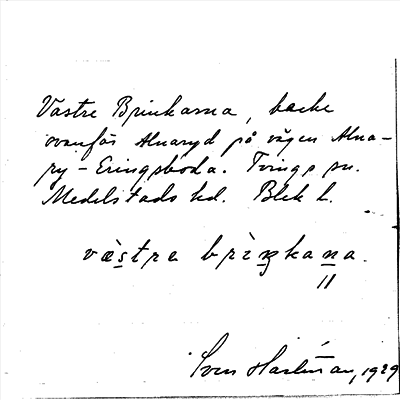 Västre Brinkarna, backe
ovanför Alnaryd på vägen Alna-
ry - Eringsboda. Tvings sn.
Medelstads hd. Blek l.
væ̀stre brìŋkana.
Sven Hartman, 1929